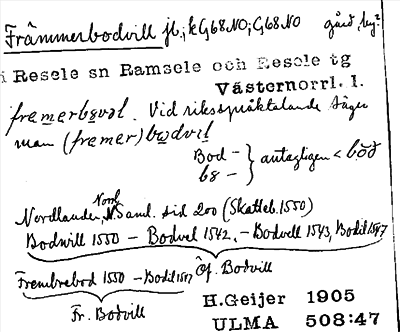 Främmerbodvill jb; k G68 NO; G68 NO gård, by?
i Resele sn Ramsele och Resele tg
Västernorrl. l.
Vid riksspråktalande säger
man (fremer)bodvil
Bod - } antagligen < bōð
bö -
Nordlander, Norrl. Saml. sid 200 (Skatteb. 1550)
Bodwill 1550 - Bodvel 1542, - Bodvell 1543, Bodil 1547
Frembrebod 1550 - Bodil 1547 Öf. Bodvill
Fr. Bodvill
H.Geijer 1905
ULMA 508:47